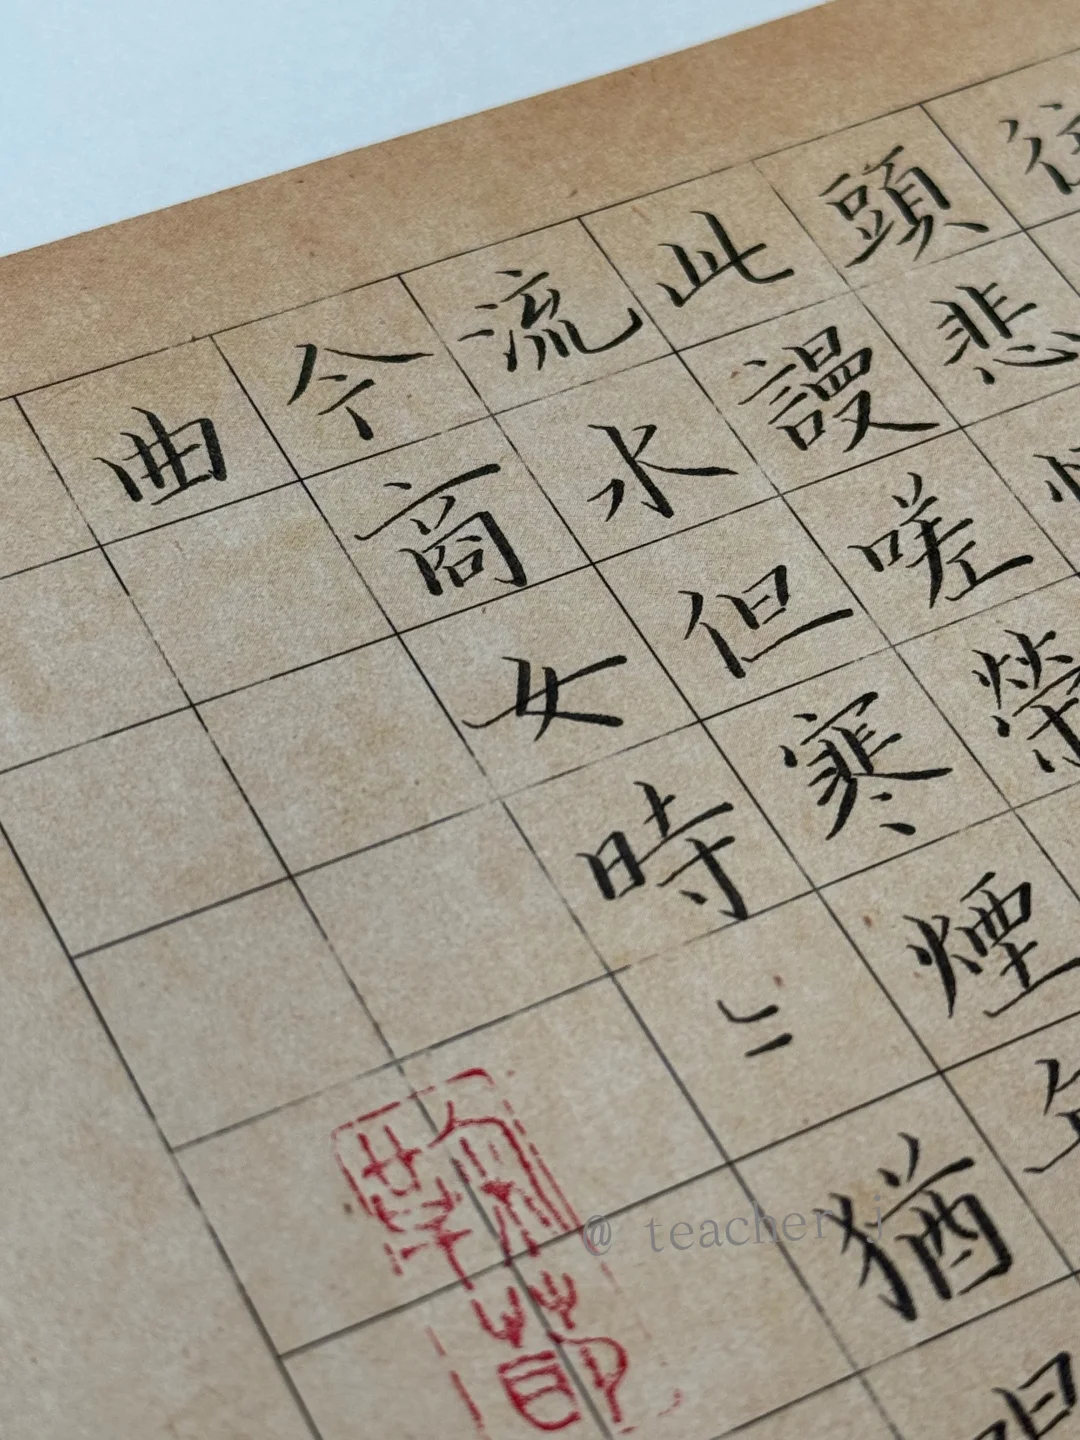 頭悲
此謾嗟榮
流水但寒煙
今商女時〻猶
曲
@ teacher j